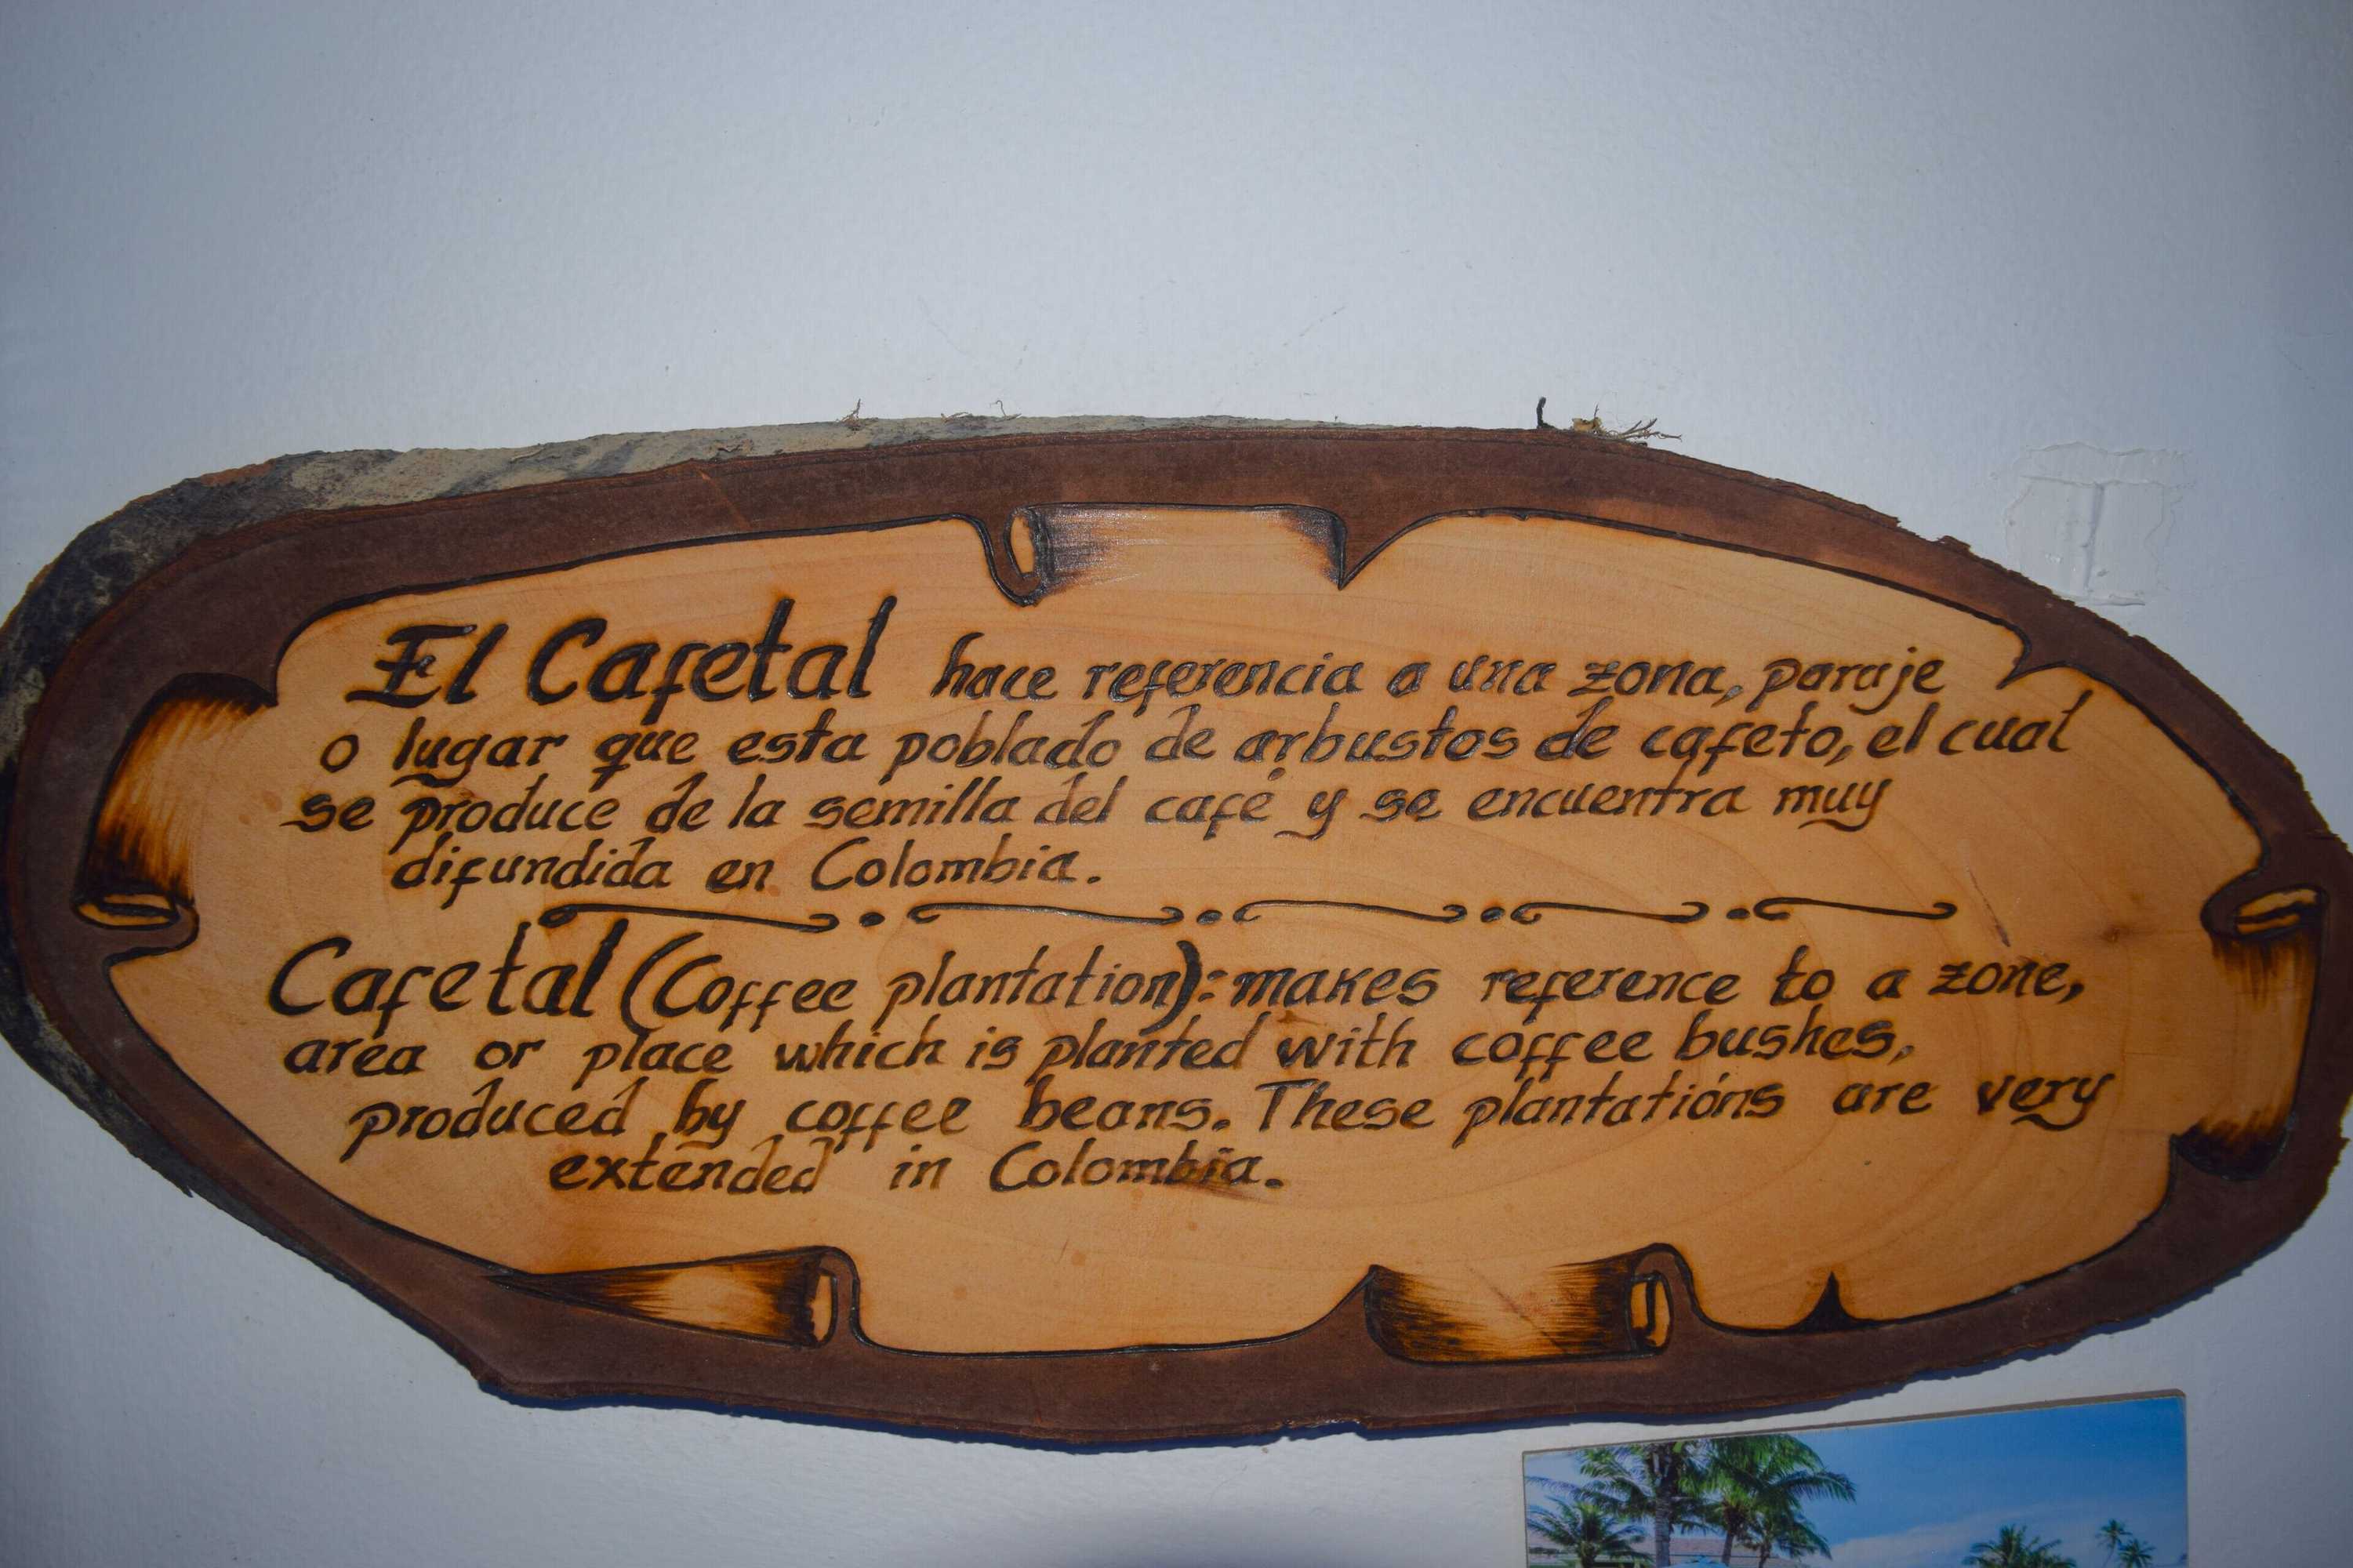 El Cafetal hace referencia a una zona, paraje
o lugar que esta poblado de arbustos de cafeto, el cual
se produce de la semilla del café y se encuentra muy
difundida en Colombia.
Cafetal (Coffee plantation): makes reference to a zone,
area or place which is planted with coffee bushes,
produced by coffee beans. These plantations are very
extended in Colombia.